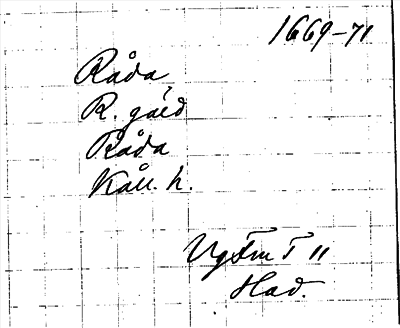 1669-71
Råda,
R. gård
Råda
Kåll. h.
VgFmT 11
Had.